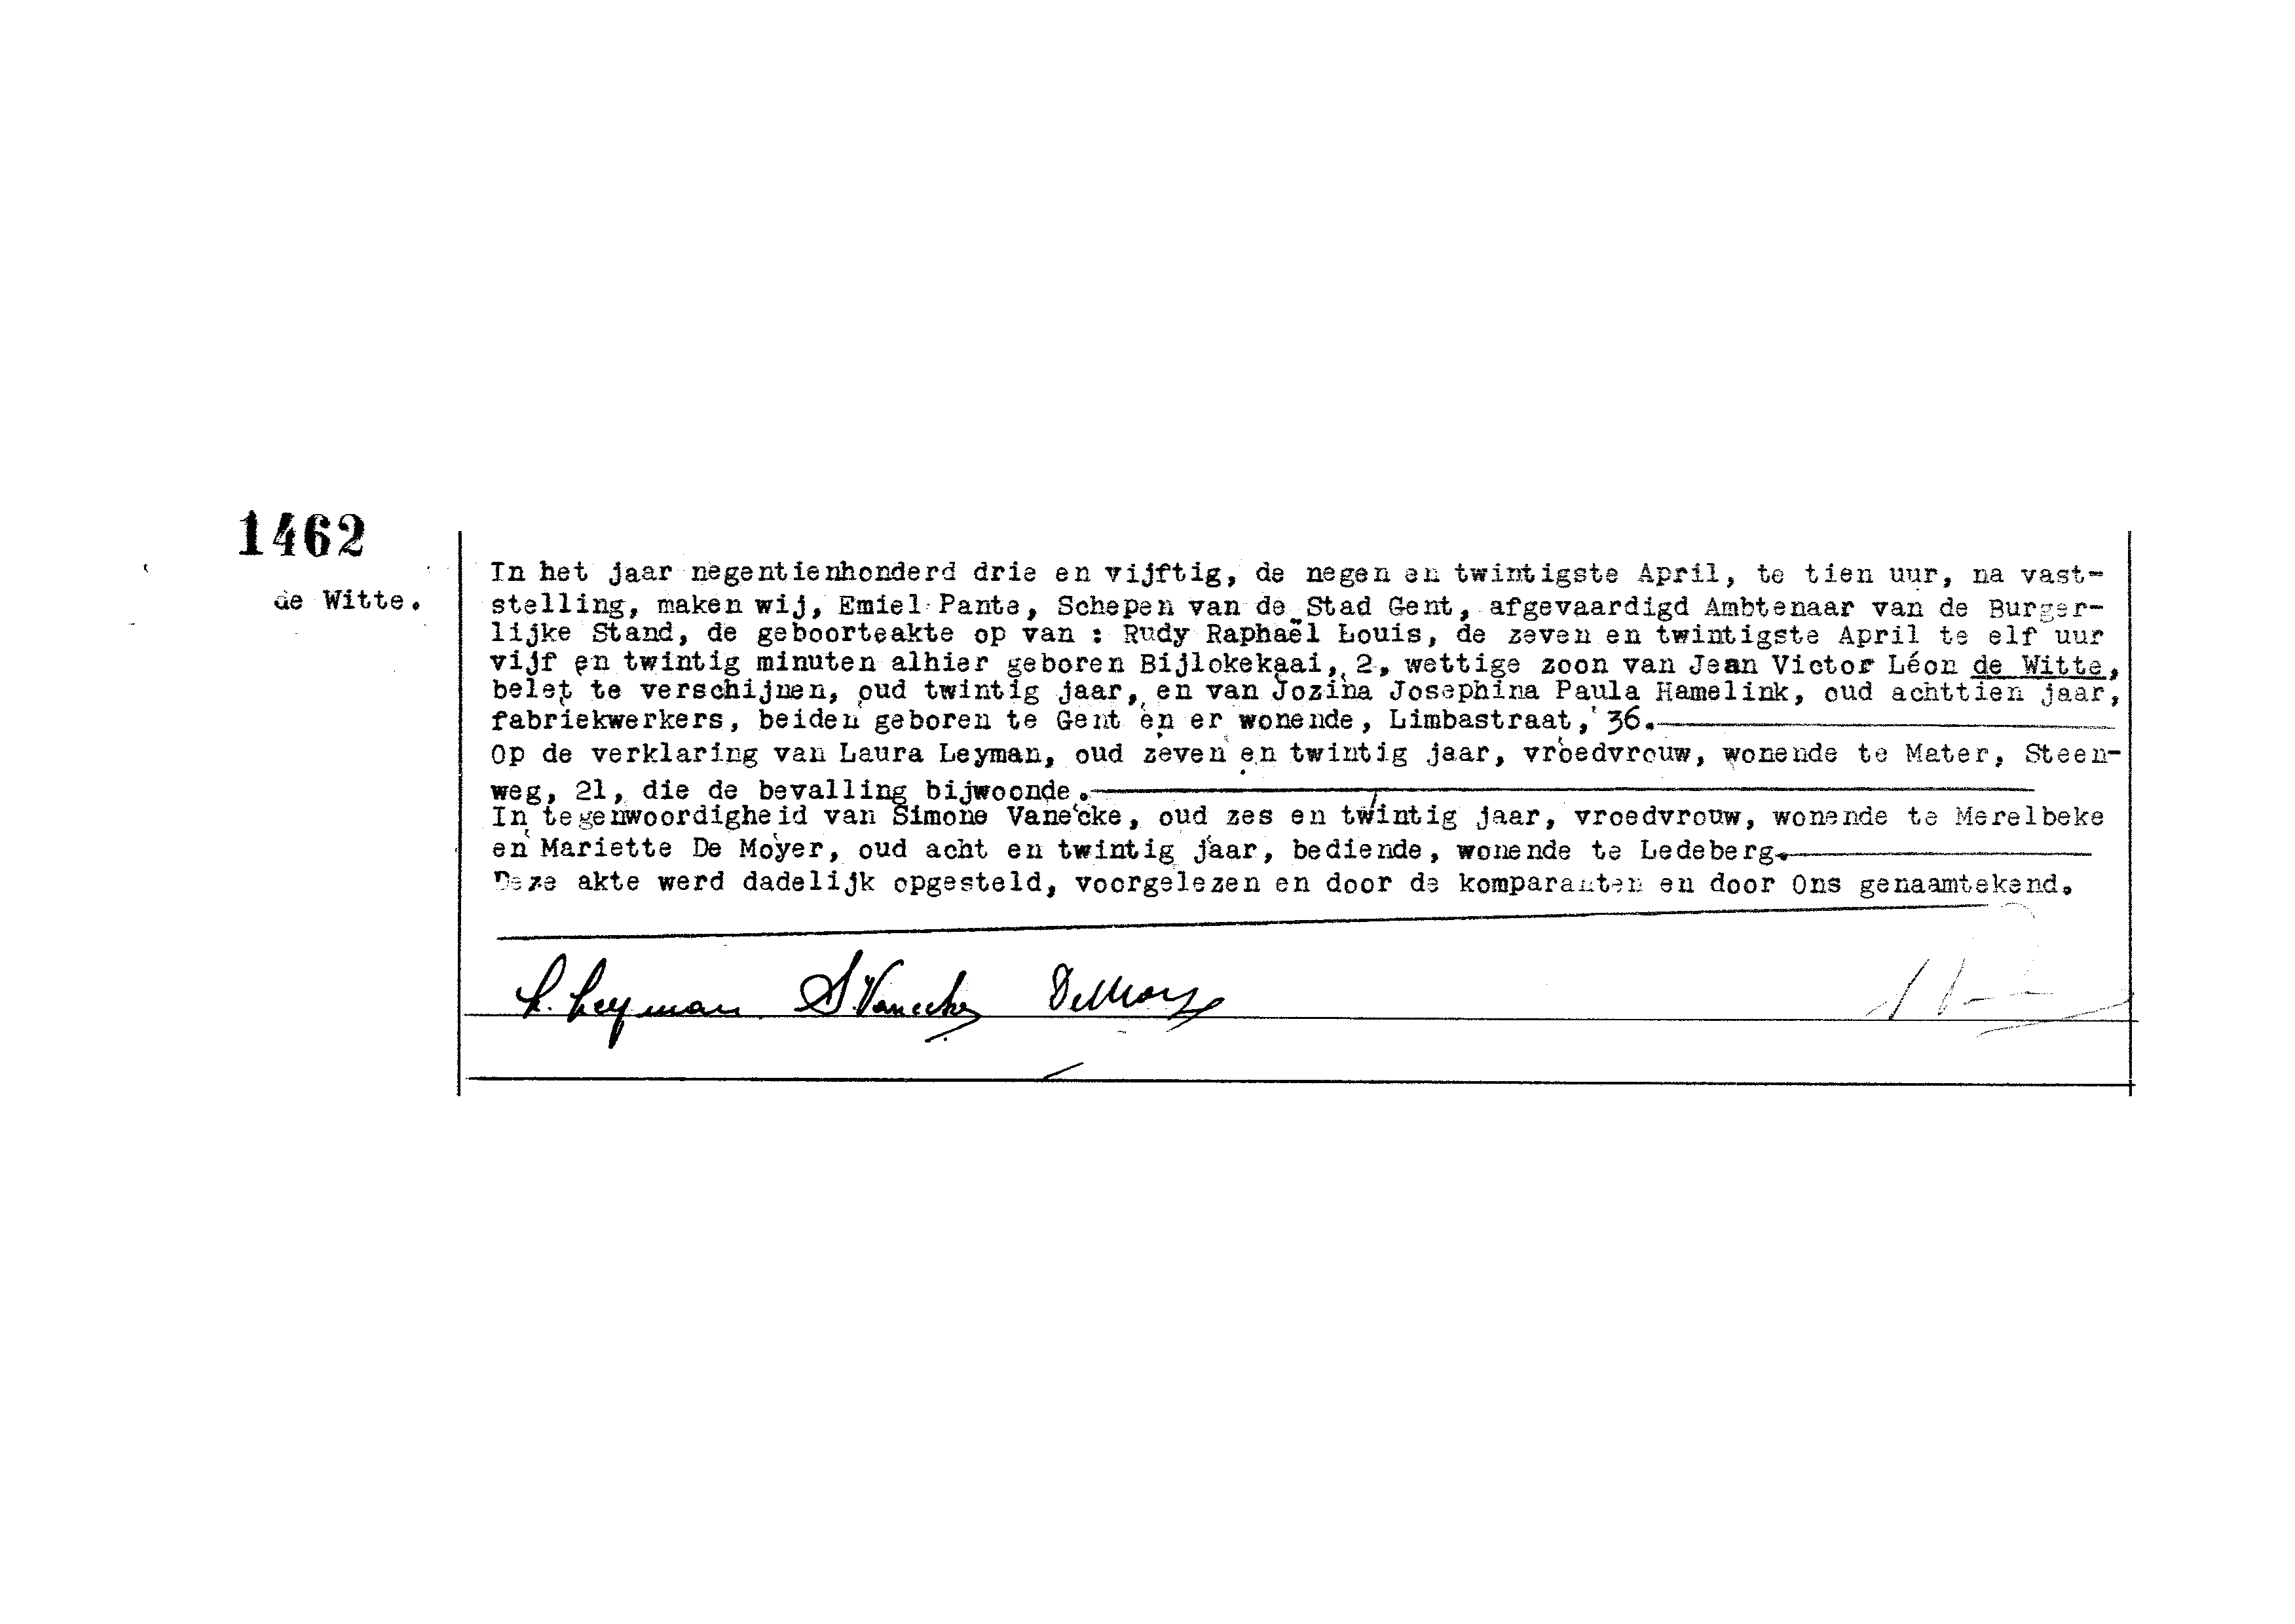 1462
de Witte.
In het jaar negentienhonderd drie en vijftig, de negen en twintigste April, te tien uur, na vast-
stelling, maken wij, Emiel Pante, Schepen van de Stad Gent, afgevaardigd Ambtenaar van de Burger-
lijke Stand, de geboorteakte op van : Rudy Raphaël Louis, de zeven en twintigste April te elf uur
vijf en twintig minuten alhier geboren Bijlokekaai, 2, wettige zoon van Jean Victor Léon de Witte,
belet te verschijnen, oud twintig jaar, en van Jozina Josephina Paula Hamelink, oud achttien jaar,
fabriekwerkers, beiden geboren te Gent en er wonende, Limbastraat, 36.
Op de verklaring van Laura Leyman, oud zeven en twintig jaar, vroedvrouw, wonende te Mater, Steen-
weg, 21, die de bevalling bijwoonde.
In tegenwoordigheid van Simone Vanecke, oud zes en twintig jaar, vroedvrouw, wonende te Merelbeke
en Mariette De Moyer, oud acht en twintig jaar, bediende, wonende te Ledeberg.
Deze akte werd dadelijk opgesteld, voorgelezen en door de komparanten en door Ons genaamtekend.
L. Leyman S. Vanecke DeMoyer